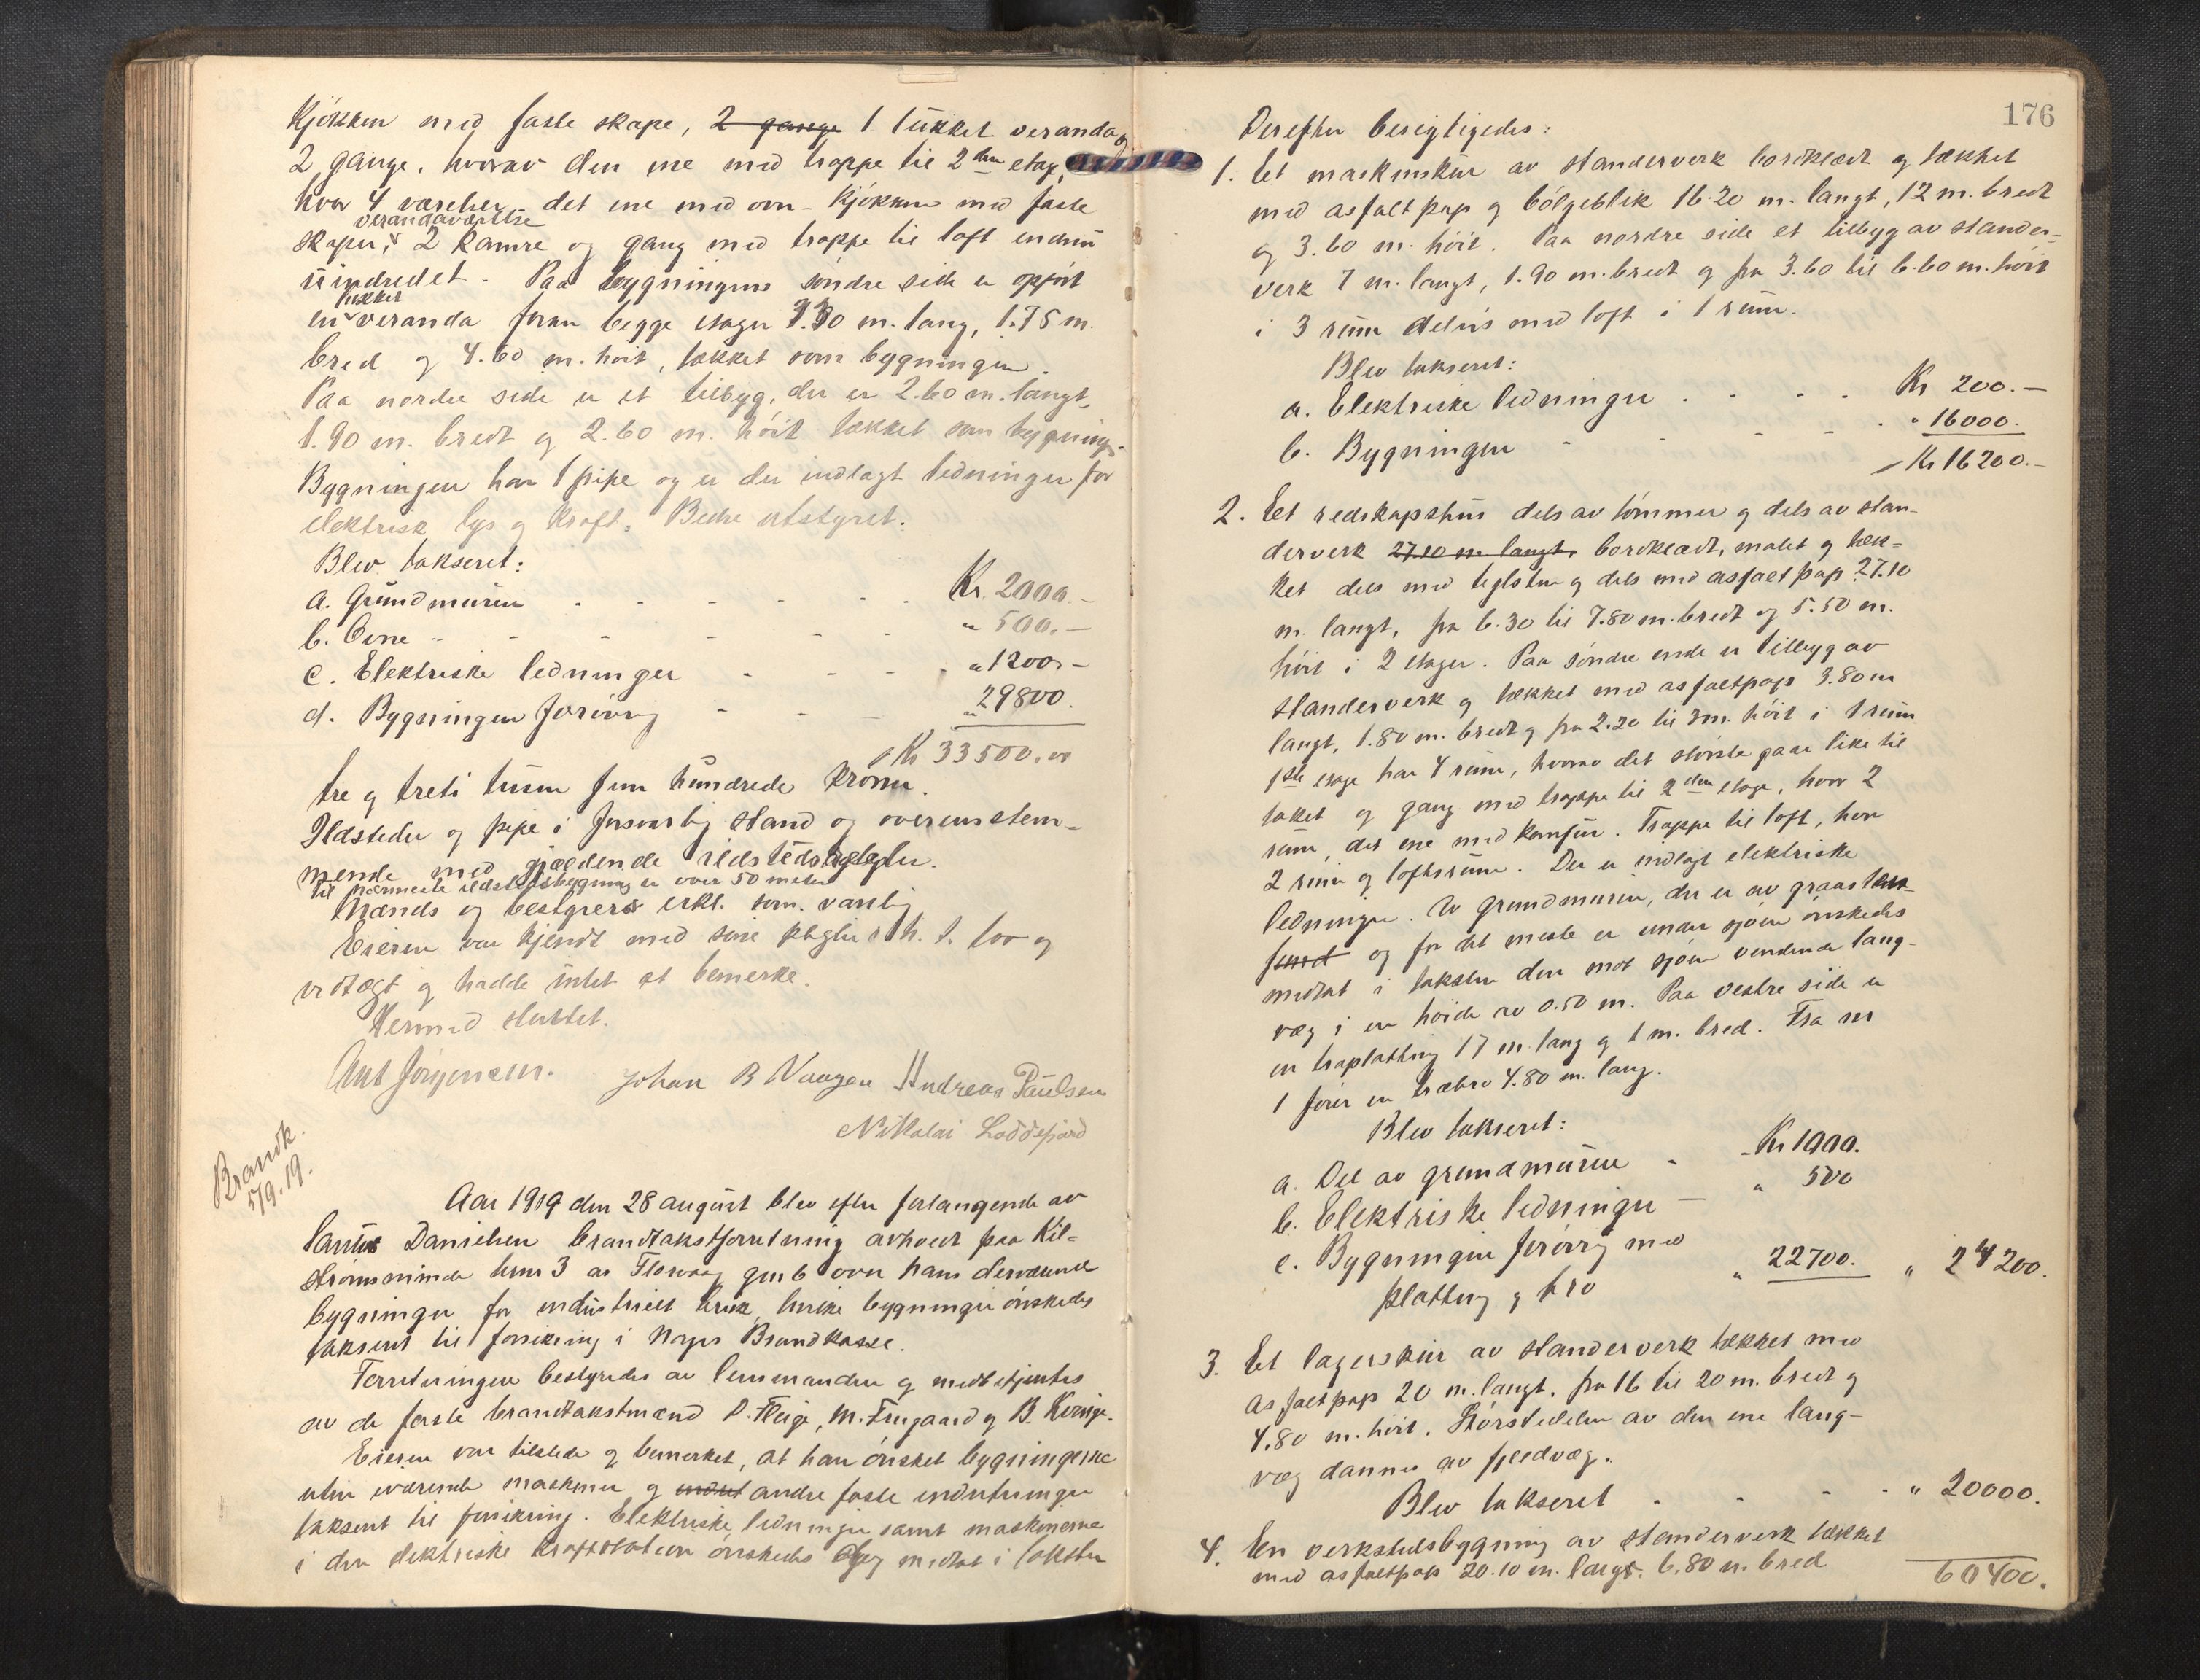 Kjøkken med faste skape, 2 gange 1 lukket veranda og
2 gange, hvorav den ene med trappe til 2den etage,
hvor 4 værelser, det ene med ovn - Kjøkken med faste
verandaværelse
skaper, 2 kamre og gang med trappe til loft endnu
uindredet - Paa bygningens søndre side er opført
lukket
en veranda foran begge etager m. lang, 1.75 m.
bred og 4.60 m. høit, tækket som bygningen.
Paa nordre side er et tilbyg, der er 2.60 m. langt,
1.90 m. bredt og 2.60 m. høit tækket som bygning.
Bygningen har 1 pipe og er der indlagt ledninger for
elektrisk lys og kraft. Bedre utstyret.
Blev takseret:
a. Grundmuren - - - - - Kr. 2000.-
b. Ovne - - - - - " 500.-
c. Elektriske ledninger - - - " 1200.-
d. Bygningen forøvrig - - - " 29800.
Kr 33500.00
tre og treti tusen fem hundrede kroner.
Ildsteder og pipe i forsvarlig stand og overensstem-
mende med gjældende ildstedsregler.
Til nærmeste ildstedsbygning er over 50 meter
Mænds og bestyrers erkl. som vanlig
Eieren var kjendt med sine pligter i h. t. lov og
vedtægt og hadde intet at bemerke.
Hermed sluttet.
Ant Jørgensen. Johan B Vaagen Andreas Paulsen
Nikolai Loddefjord
Brandk.
5/9.19.
Aar 1919 den 28 august blev efter forlangende av
Danielsen brandtakstforretning avholdt paa Kil-
strømsminde bnr 3 av Florvaag gnr 6 over hans derværende
bygninger for industrielt bruk, hvilke bygninger ønskedes
takseret til forsikring i Norges Brandkasse.
Forretningen bestyredes av lensmanden og medbetjentes
av de faste brandtakstmænd P. Fleige, M. Frugaard og B. Kvinge.
Eieren var tilstede og bemerket, at han ønsket bygningerne
uten iværende maskiner og andre faste indretninger
taksert til forsikring. Elektriske ledninger samt maskinerne
i den elektriske kraftstation ønskedes dog medtat i taksten
176
Derefter besigtigedes:
1. Et maskinskur av standerverk bordklædt og tækket
med asfaltpap og bølgeblik 16.20 m. langt, 12 m. bredt
og 3.60 m. høit. Paa nordre side et tilbyg av stander-
verk 7 m. langt, 1.90 m. bredt og fra 3.60 til 6.60 m. høit
i 3 rum delvis med loft i 1 rum.
Blev takseret:
a. Elektriske ledninger . . . . Kr 200.-
b. Bygningen - - - - - " 16000.
Kr 16200.-
2. Et redskapshus dels av tømmer og dels av stan-
derverk 27.10 m. langt, bordklædt, malet og tæk-
ket dels med teglsten og dels med asfaltpap 27.10
m. langt, fra 6.30 til 7.80 m. bredt og 5.50 m.
høit i 2 etager. Paa søndre ende er tilbyg av
standerverk og tækket med asfaltpap 3.80 m
langt, 1.80 m. bredt og fra 2.20 til 3 m. høit i 1 rum
1ste etage har 4 rum, hvorav det største gaar like til
taket og gang med trappe til 2den etage, hvor 2
rum, det ene med komfur. Trappe til loft, hvor
2 rum og loftsrum. Der er indlagt elektriske
ledninger. Av grundmuren, der er av graasten
og for det meste er under sjøen ønskedes
medtat i taksten den mot sjøen vendende lang-
væg i en høide av 0.50 m. Paa vestre side er
en træplatting 17 m. lang og 1 m. bred. Fra nr
1 fører en træbro 4.80 m. lang.
Blev takseret:
a. Del av grundmuren - Kr 1000.
b. Elektriske ledninger - " 500
c. Bygningen forøvrig med
platting og bro " 22700. " 24200.
3. Et lagerskur av standerverk tækket med
asfaltpap 20 m. langt, fra 16 til 20 m. bredt og
4.80 m. høit. Størstedelen av den ene lang-
væg dannes av fjeldvæg.
Blev takseret . - - - " 20000.
4. En verkstedsbygning av standerverk tækket
med asfaltpap 20.10 m. lang. 6.80 m. bred
60400.